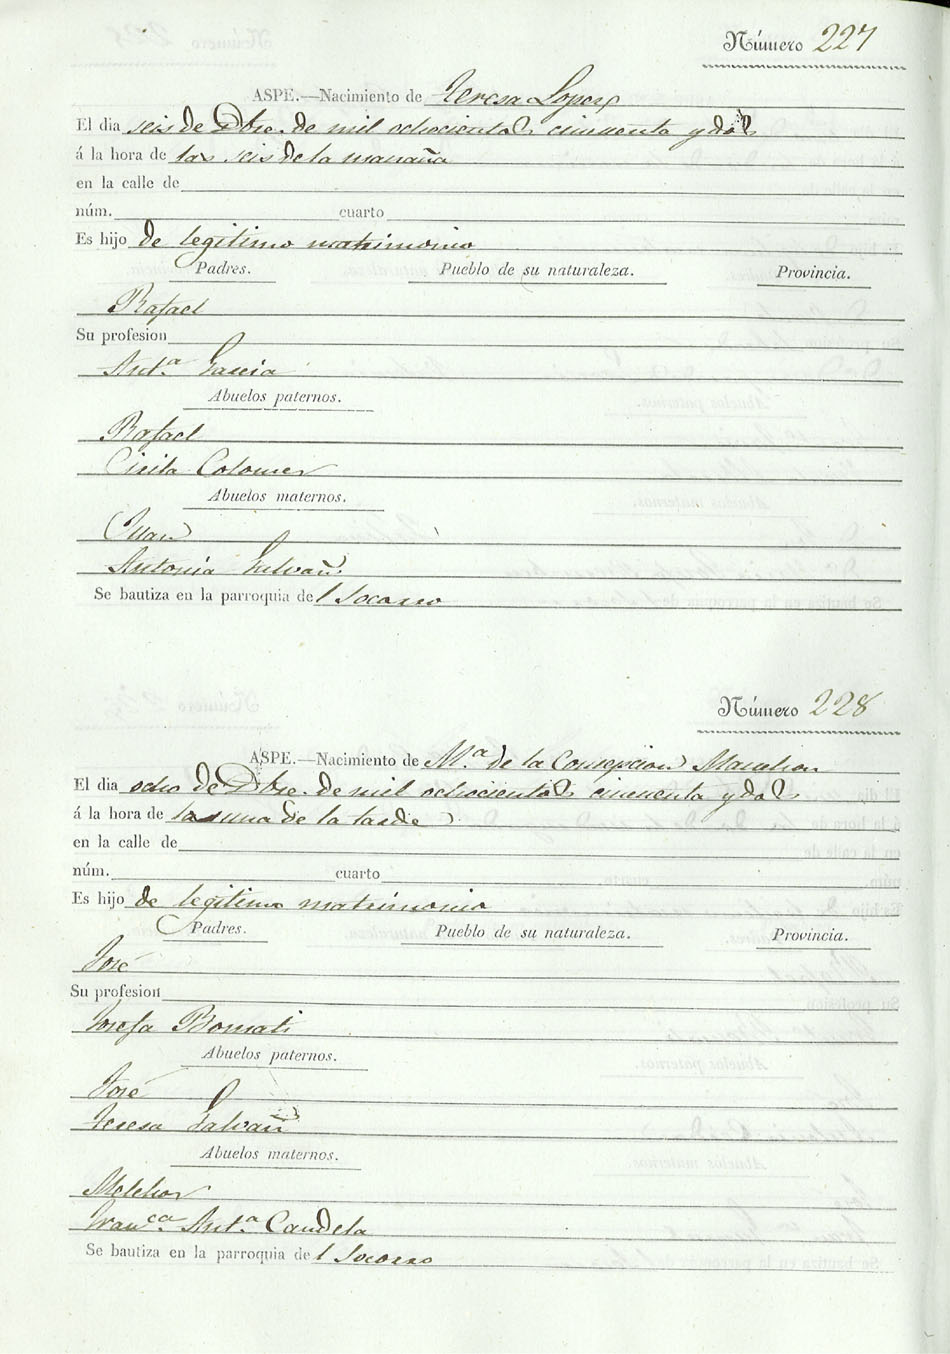 Número 227
ASPE.—Nacimiento de Teresa Lopez
El dia seis de Dbre. de mil ochocientos cincuenta y dos
á la hora de las seis de la mañana
en la calle de
núm. cuarto
Es hijo de legitimo matrimonio
Padres. Pueblo de su naturaleza. Provincia.
Rafael
Su profesion
Ant.ª Garcia
Abuelos paternos.
Rafael
Cicila Colomer
Abuelos maternos.
Juan
Antonia Galvañ
Se bautiza en la parroquia del Socorro
Número 228
ASPE.—Nacimiento de M.ª de la Concepcion
El dia ocho de Dbre. de mil ochocientos cincuenta y dos
á la hora de la una de la tarde
en la calle de
núm. cuarto
Es hijo de legitimo matrimonio
Padres. Pueblo de su naturaleza. Provincia.
José
Su profesion
Josefa Bonmati
Abuelos paternos.
José
Teresa Galvañ
Abuelos maternos.
Melchor
Fran.ca Ant.ª Candela
Se bautiza en la parroquia del Socorro